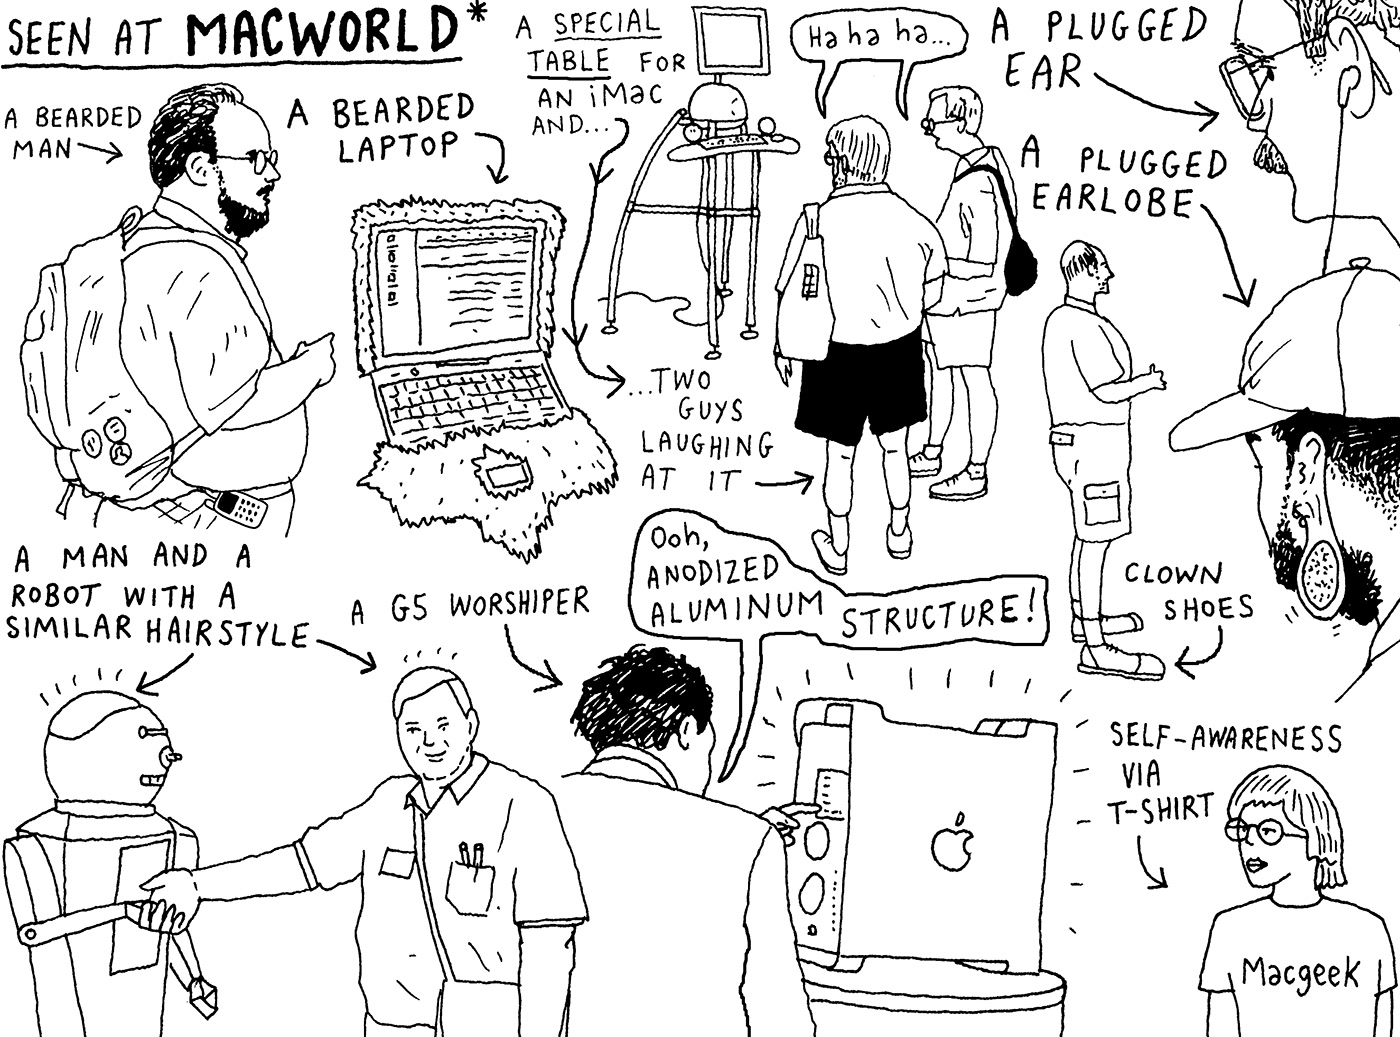 SEEN AT MACWORLD*
A BEARDED
MAN
A BEARDED
LAPTOP
A SPECIAL
TABLE FOR
AN iMac
AND...
Ha ha ha...
...TWO
GUYS
LAUGHING
AT IT
A PLUGGED
EAR
A PLUGGED
EARLOBE
CLOWN
SHOES
A MAN AND A
ROBOT WITH A
SIMILAR HAIRSTYLE
A G5 WORSHIPER
Ooh,
ANODIZED
ALUMINUM STRUCTURE!
SELF-AWARENESS
VIA
T-SHIRT
Macgeek